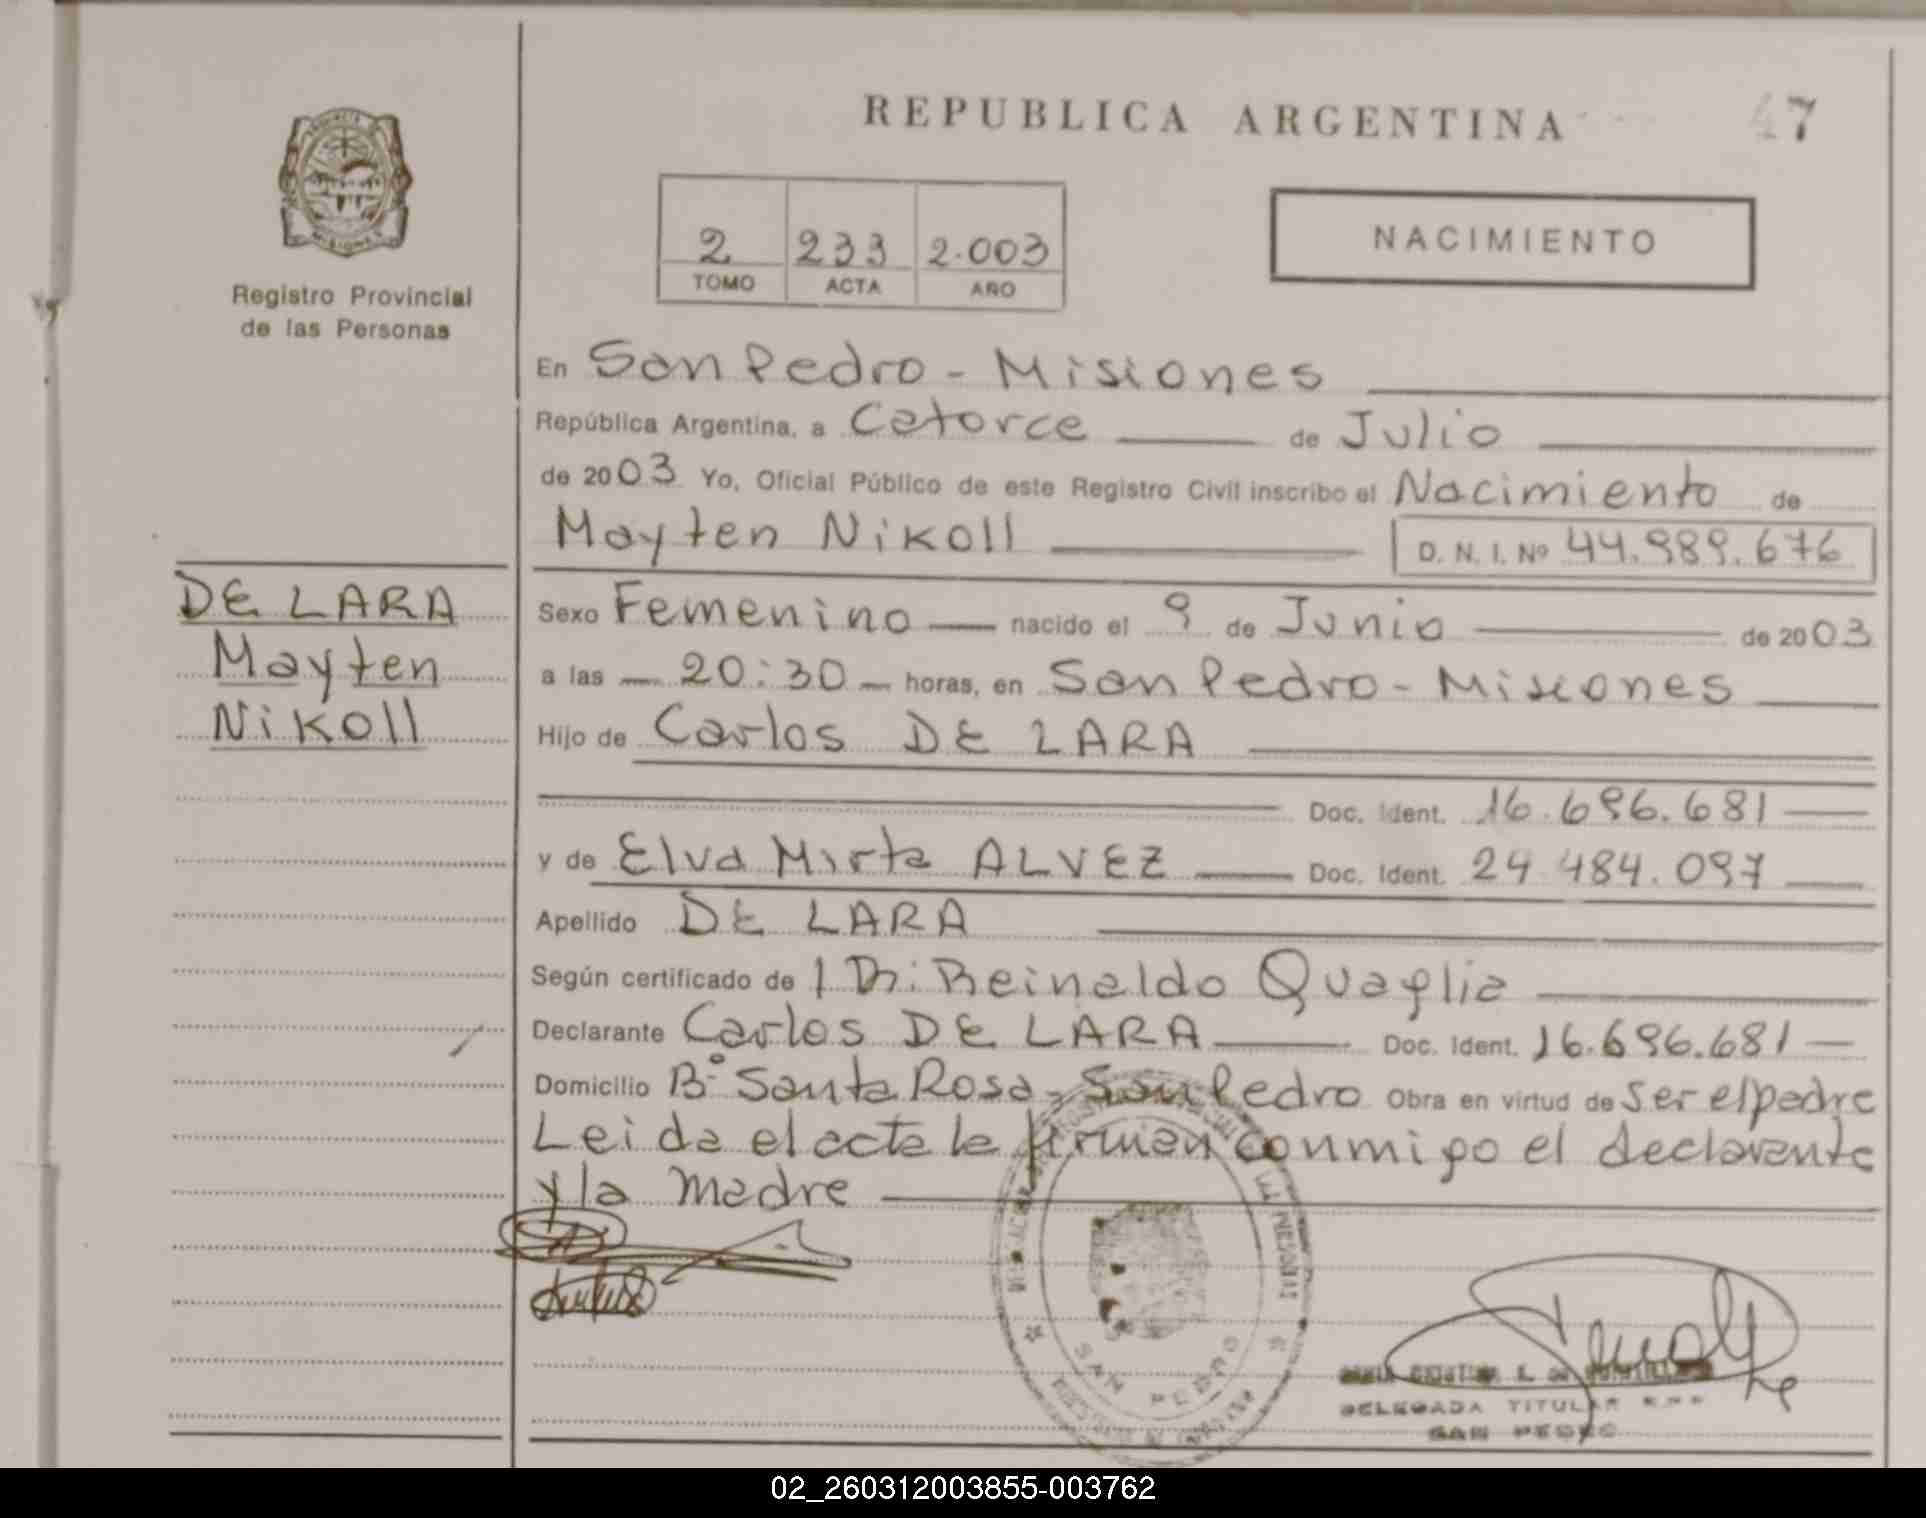 REPUBLICA ARGENTINA
47
PROVINCIA DE
MISIONES
Registro Provincial
de las Personas
2 233 2.003
TOMO ACTA AÑO
NACIMIENTO
En San Pedro - Misiones
República Argentina, a Catorce de Julio
de 2003 Yo, Oficial Público de este Registro Civil inscribo el Nacimiento de
Mayten Nikoll D. N. I. Nº 44.989.676
DE LARA
Mayten
Nikoll
Sexo Femenino nacido el 9 de Junio de 2003
a las 20:30 horas, en San Pedro - Misiones
Hijo de Carlos DE LARA
Doc. Ident. 16.696.681
y de Elva Mirta ALVEZ Doc. Ident. 24.484.097
Apellido DE LARA
Según certificado de Reinaldo Quaglia
Declarante Carlos DE LARA Doc. Ident. 16.696.681
Domicilio Bº Santa Rosa - San Pedro Obra en virtud de ser el padre
Leida el acta la firman conmigo el declarante
y la madre
SAN PEDRO
DELEGADA TITULAR
SAN PEDRO
02_260312003855-003762